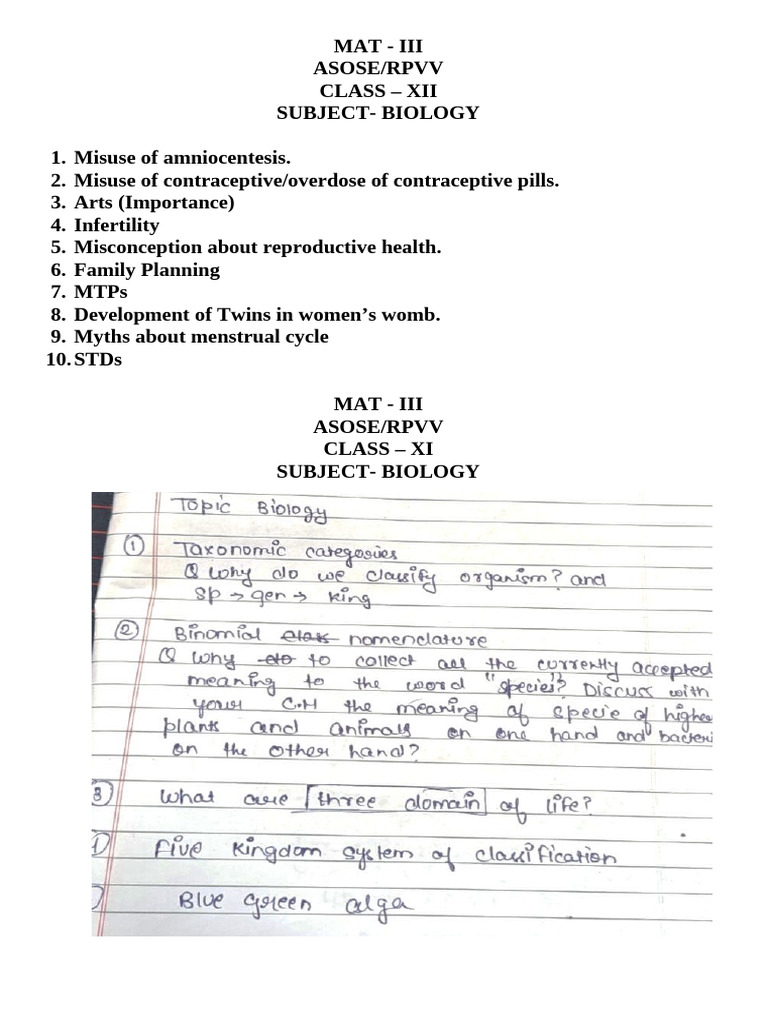 MAT - III
ASOSE/RPVV
CLASS – XII
SUBJECT- BIOLOGY
1. Misuse of amniocentesis.
2. Misuse of contraceptive/overdose of contraceptive pills.
3. Arts (Importance)
4. Infertility
5. Misconception about reproductive health.
6. Family Planning
7. MTPs
8. Development of Twins in women’s womb.
9. Myths about menstrual cycle
10. STDs
MAT - III
ASOSE/RPVV
CLASS – XI
SUBJECT- BIOLOGY
Topic Biology
① Taxonomic categories
Q Why do we classify organism? and
Sp → gen → king
② Binomial nomenclature
Q Why to collect all the currently accepted
meaning to the word "species"? Discuss with
your C.H the meaning of specie of higher
plants and animals on one hand and bacteri
on the other hand?
3) What are three domain of life?
Five kingdom system of classification
Blue green alga